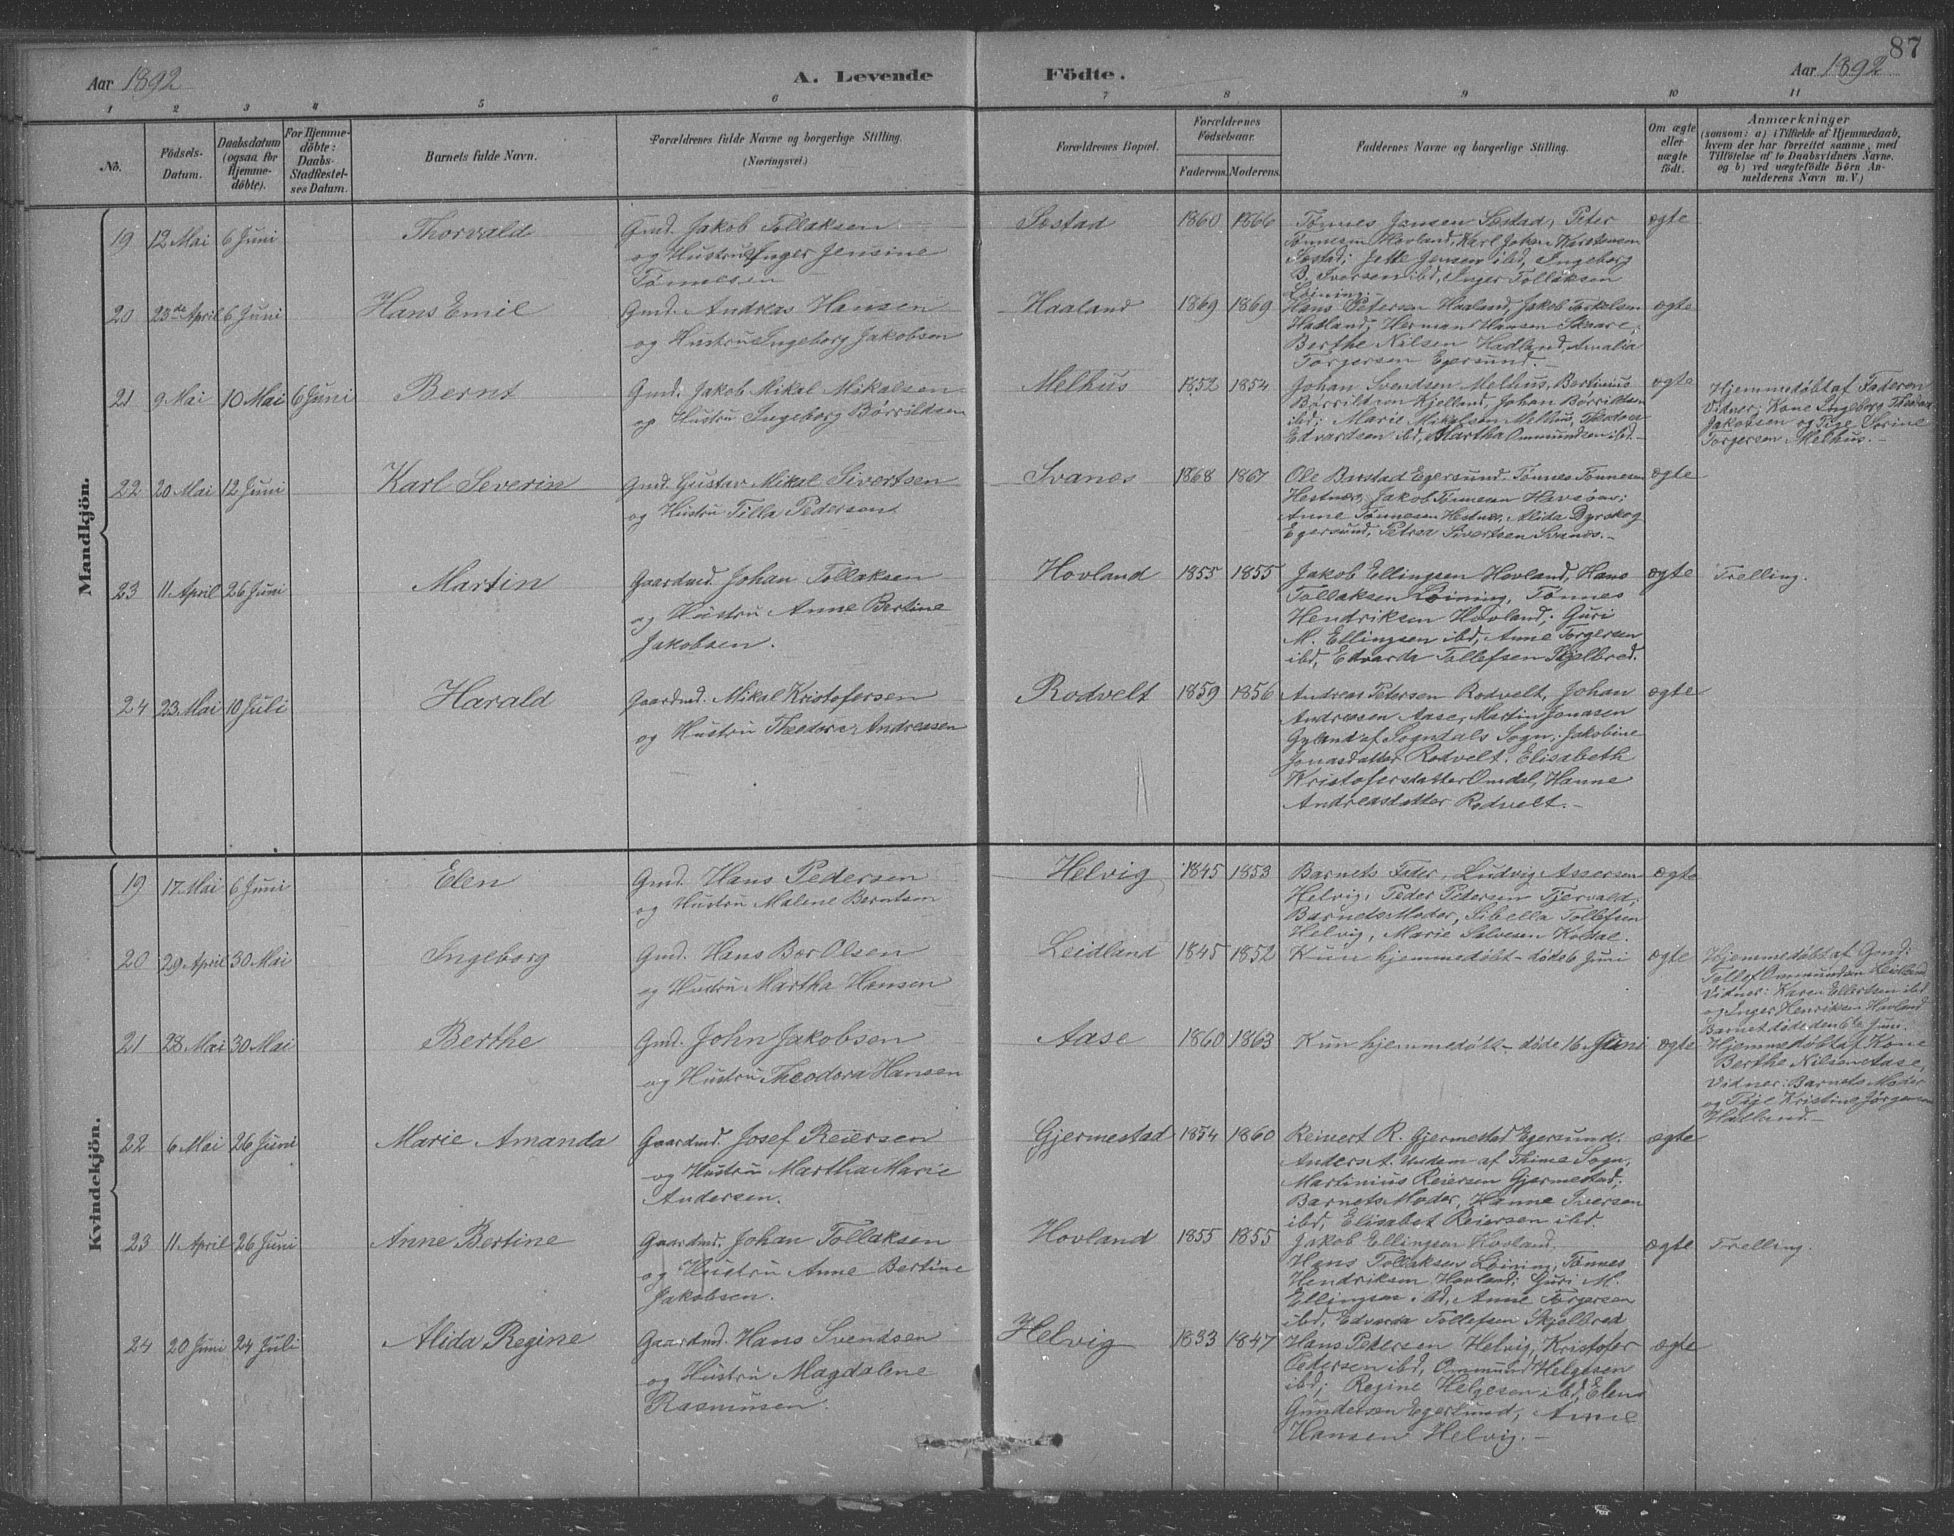 87
Aar 1892
A. Levende Födte.
Aar 1892
1 2 3 4 5 6 7 8 9 10 11
No.
Födsels-Datum.
Daabsdatum (ogsaa for Hjemmedöbte).
For Hjemmedöbte: Daabs-Stadfæstelses Datum.
Barnets fulde Navn.
Forældrenes fulde Navne og borgerlige Stilling.
(Næringsvei.)
Forældrenes Bopæl.
Forældrenes Födselsaar.
Faderens. Moderens.
Faddernes Navne og borgerlige Stilling.
Om ægte eller uægte födt.
Anmærkninger
(saasom: a) i Tilfælde af Hjemmedaab,
hvem der har forrettet samme, med
Tilföielse af to Daabsvidners Navne,
og b) ved uægtefödte Börn Anmelderens Navn m. V.)
Mandkjön.
19 12 Mai 6 Juni Thorvald Gmd. Jakob Tollaksen Sostad 1860 1866 Tønnes Jensen Sostad, Peter ægte
og Hustru Inger Jensine Tønnesen Hovland, Karl Johan Karstensen
Tønnesen Sostad; Jette Jensen ibd, Ingeborg
B. Iversen ibd, Inger Tollaksen
Løining.-
20 23de April 6 Juni Hans Emil Gmd. Andreas Hansen Haaland 1869 1869 Hans Petersen Haaland, Jakob Torkelsen ægte
og Hustru Ingeborg Jakobsen Hadland; Herman Hansen Skaare,
Berthe Nilsen Hadland, Amalia
Torgersen Egersund.
21 9 Mai 10 Mai 6 Juni Bernt Gmd. Jakob Mikal Mikalsen Melhus 1852 1854 Johan Svendsen Melhus, Bertinius ægte Hjemmedøbt af Faderen
og Hustru Ingeborg Børrildsen Børrildsen Kjelland, Johan Børrildsen Vidner: Kone Ingeborg Theodora
ibd; Marie Mikalsen Melhus, Theodora Jakobsen og Pige Serine
Edvardsen ibd, Martha Ommundsen ibd. Torgersen Melhus.-
22 20 Mai 12 Juni Karl Severin Gmd. Gustav Mikal Sivertsen Svanes 1868 1867 Ole Barstad Egersund, Tønnes Tønnesen ægte
og Hustru Tilla Pedersen Hestnes, Jakob Tønnesen Havsøen;
Anne Tønnesen Hestnes, Alida Dyrskog
Egersund, Petrea Sivertsen Svanes.-
23 11 April 26 Juni Martin Gaardmd. Johan Tollaksen Hovland 1855 1855 Jakob Ellingsen Hovland, Hans ægte Trelling.
og Hustru Anne Bertine Tollaksen Løining, Tønnes
Jakobsen. Hendriksen Hovland; Guri
M. Ellingsen ibd, Anne Torgersen
ibd, Edvarda Tollefsen Skjelbred.
24 23 Mai 10 Juli Harald Gaardmd. Mikal Kristofersen Rodvelt 1859 1856 Andreas Petersen Rodvelt, Johan ægte
og Hustru Theodora Andreassen Andreasen Aase, Martin Jonasen
Gyland af Sogndals Sogn; Jakobine
Jonasdatter Rodvelt. Elisabeth
Kristofersdatter Omdal, Hanne
Andreasdatter Rodvelt.-
Kvindekjön.
19 17 Mai 6 Juni Elen Gmd. Hans Pedersen Helvig 1845 1853 Barnets Fader, Ludvig Assersen ægte
og Hustru Malene Berntsen Helvig, Peder Pedersen Tjervald;
Barnets Moder, Sibella Tollefsen
Helvig, Marie Salvesen
20 29 April 30 Mai Ingeborg Gmd. Hans Ber Olsen Leidland 1845 1852 Kun hjemmedøbt - døde 6 Juni ægte Hjemmedøbt af Gmd:
og Hustru Martha Hansen Tollef Ommundsen Leidland
Vidner: Karen Ellertsen ibd
og Inger Henriksen Hovland
Barnet døde den 6te Juni.
21 28 Mai 30 Mai Berthe Gmd. John Jakobsen Aase 1860 1863 Kun hjemmedøbt - døde 16 Juni ægte Hjemmedøbt af Kone
og Hustru Theodora Hansen Berthe Nilsen Aase,
Vidner: Barnets Moder
og Pige Kristine Jørgensen
Hadland.-
22 6 Mai 26 Juni Marie Amanda Gaardmd. Josef Reiersen Gjermestad 1854 1860 Reinert R. Gjermestad Egersund. ægte
og Hustru Martha Marie Anders A. Undem af Thime Sogn,
Andersen. Martinius Reiersen Gjermestad;
Barnets Moder, Hanne Iversen
ibd, Elisabet Reiersen ibd
23 11 April 26 Juni Anne Bertine Gaardmd. Johan Tollaksen Hovland 1855 1855 Jakob Ellingsen Hovland, ægte Trelling.
og Hustru Anne Bertine Hans Tollaksen Løining, Tønnes
Jakobsen. Hendriksen Hovland; Guri M.
Ellingsen ibd, Anne Torgersen
ibd, Edvarda Tollefsen Skjelbred
24 20 Juni 24 Juli Alida Regine Gaardmd. Hans Svendsen Helvig 1833 1847 Hans Petersen Helvig, Kristofer ægte
og Hustru Magdalene Pedersen ibd, Ommund Helgesen
Rasmussen. ibd; Regine Helgesen ibd, Elen
Gundersen Egersund, Anne
Hansen Helvig.-